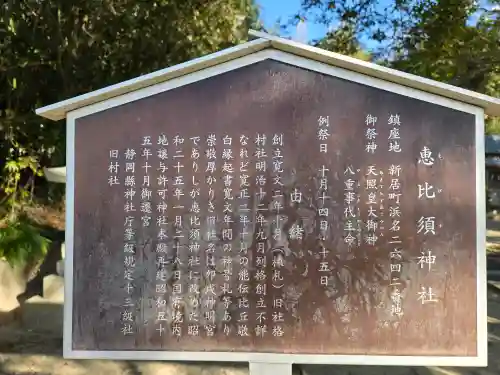 恵比須神社
鎮座地 新居町浜名二六四二番地
御祭神 天照皇大御神
八重事代主命
例祭日 十月十四日・十五日
由緒
創立寛文二年十月(棟札)旧社格
村社明治十二年九月列格創立不詳
なれど寛正二年十月の能伝比丘敬
白縁起書寛文年間の神号札等あり
崇敬厚かりき旧社名は卯辰神明宮
でありしが恵比須神社に改めた昭
和二十五年一月二十八日国有境内
地譲与許可神社本殿再建昭和五十
五年十月御遷宮
静岡県神社庁等級規定十三級社
旧村社